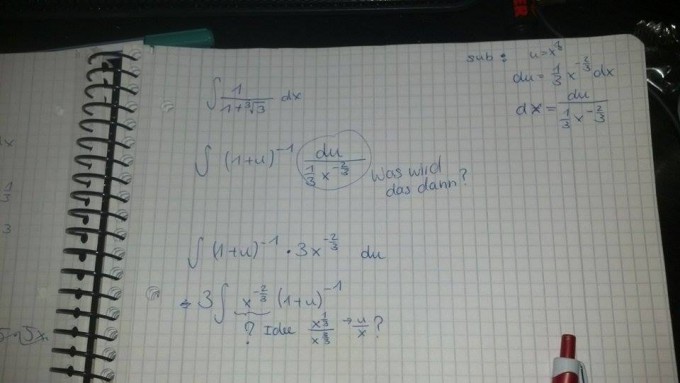 sub: u = x^(1/3)
du = 1/3 x^(-2/3) dx
dx = du / (1/3 x^(-2/3))
∫ 1/(1+∛3) dx
∫ (1+u)^-1 du / (1/3 x^(-2/3)) Was wird
das dann?
∫ (1+u)^-1 · 3x^(-2/3) du
= 3 ∫ x^(-2/3) (1+u)^-1
? Idee x^(1/3)/x^(3/3) → u/x ?